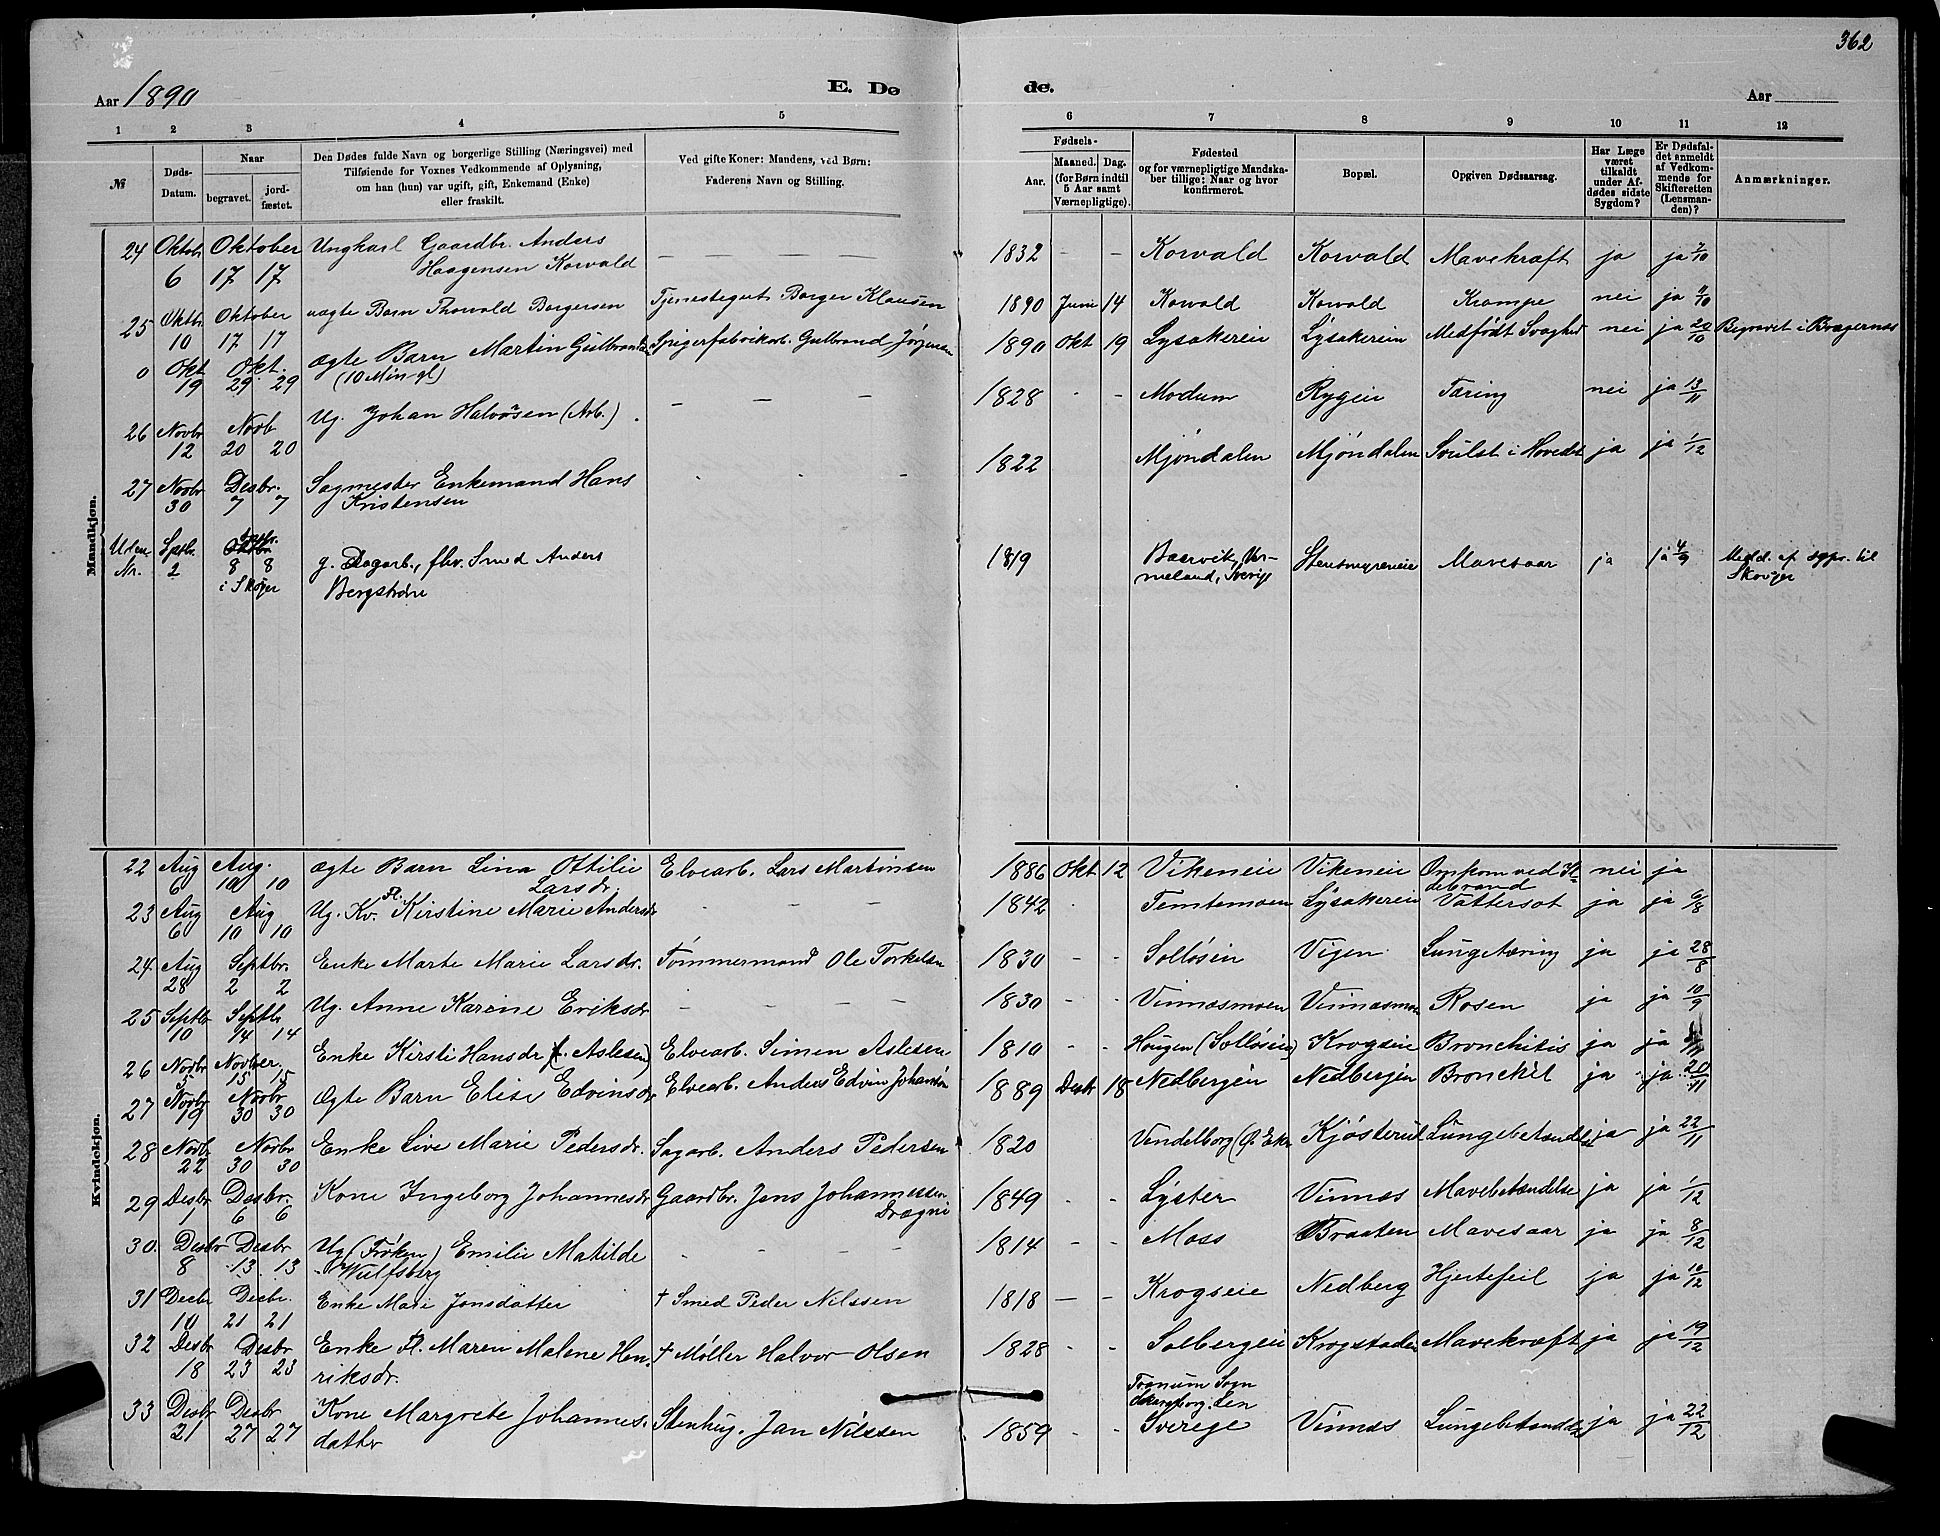 362
Aar 1890
E. Dø
de.
Aar
1 2 3 4 5 6 7 8 9 10 11 12
№
Døds-Datum.
Naar
begravet.
jordfæstet.
Den Dødes fulde Navn og borgerlige Stilling (Næringsvei) med
Tilføiende for Voxnes Vedkommende af Oplysning,
om han (hun) var ugift, gift, Enkemand (Enke)
eller fraskilt.
Ved gifte Koner: Mandens, ved Børn:
Faderens Navn og Stilling.
Fødsels-
Aar.
Maaned. Dag.
(for Børn indtil
5 Aar samt
Værnepligtige).
Fødested
og for værnepligtige Mandska-
ber tillige: Naar og hvor
konfirmeret.
Bopæl.
Opgiven Dødsaarsag.
Har Læge
været
tilkaldt
under Af-
dødes sidste
Sygdom?
Er Dødsfal-
det anmeldt
af Vedkom-
mende for
Skifteretten
(Lensman-
den)?
Anmærkninger.
Mandkjøn.
24 Oktob 6 Oktober 17 17 Ungkarl Gaardbr. Anders Haagensen Korvald — — — 1832 - - Korvald Korvald Mavekræft ja ja 7/10
25 Oktbr 10 Oktober 17 17 uægte Barn Thorvald Borgersen Tjenestegut Borger Klausen 1890 Juni 14 Korvald Korvald Krampe nei ja 11/10
0 Okt 19 Okt. 29 29 Ægte Barn Martin Gulbrandsen (10 Min. gl) Spigerfabrikarb. Gulbrand Jörgensen 1890 Okt 19 Lysakereie Lysakereie Medfödt Svaghed nei ja 20/10 Begravet i Bragernæs
26 Novbr 12 Novb 20 20 Ug. Johan Halvorsen (Arb.) — — — 1828 - - Modum Rygeie Tæring nei ja 13/11
27 Novbr 30 Desbr. 7 7 Sagmester Enkemand Hans Kristensen 1822 Mjöndalen Mjöndalen Svulst i Hovedet ja ja 1/12
Uden Nr. Sptbr. 2 Sptbr. 8 8 i Skoger g. Dagarb., fhv. Smed Anders Bergström 1819 Værmeland, Sverige Stensmyreneie Mavesaar ja ja 4/9 Medd. af sgpr. til Skoger
Kvindekjøn.
22 Aug 6 Aug. 10 10 Ægte Barn Lina Ottilie Larsdr. Elvearb. Lars Martinsen 1886 Okt 12 Vikeneie Vikeneie Omkom ved Ildebrand nei ja
23 Aug 6 Aug 10 10 Ug. Kv. Fl. Kirstine Marie Andersdr - - - 1842 Temtemoen Lysakereie Vattersot ja ja 6/8
24. Aug 28 Septbr. 2 2 Enke Marte Marie Larsdr. Tømmermand Ole Torkelsen 1830 - - Sollösin Vijen Lungetæring ja ja 28/8
25 Septbr 10 Septbr 14 14 Ug. Anne Karine Eriksdr - - - 1830 - - Vinnæsmoen Vinnæsmoen Rosen ja ja 10/9
26 Novbr 5 Novber 15 15 Enke Kirsti Hansdr (f. Aslesen) Elvearb. Simen Aslesen 1810 - - Hougen (Sollösin) Krogseie Bronchitis ja ja
27 Novbr 19 Novbr 30 30 Ægte Barn Elise Edvinsdr Elvearb. Anders Edvin Johansen 1889 Desbr 18 Nedbergeie Nedbergeie Bronckit ja ja 20/11
28 Novbr 22 Novbr 30 30 Enke Live Marie Pedersdr. Sagarb. Anders Pedersen 1820 Vendelborg (Ø. Eker Kjøsterud Lungebetændelse ja ja 22/11
29 Desbr 1 Desbr. 6 6 Kone Ingeborg Johannesdr Gaardbr. Jens Johannessen Drægni 1849 - - Lyster Vinnæs Mavebetændelse ja ja 1/12
30. Desbr 8 Desbr 13 13 Ug. (Frøken) Emilie Matilde Wulfsberg - - - 1814 - - Moss Braaten Mavesaar ja ja 8/12
31 Decbr 10 Decbr. 21 21 Enke Mari Jonsdatter † Smed Peder Nilssen 1818 — — Krogseie Nedberg Hjertefeil ja ja 10/12
32 Desbr 18 Desbr 23 23 Enke Fl. Maren Malene Henriksdr. † Møller Halvor Olsen 1828 - - Solbergeie Krogstadeie Mavekræft ja ja 19/12
33 Desbr 21 Desbr 27 27 Kone Margrete Johannesdatter Stenhug. Jan Nilssen 1859 - - Tranum Sogn Skaraborg. Len Sverige Vinnæs Lungebetændelse ja ja 22/12